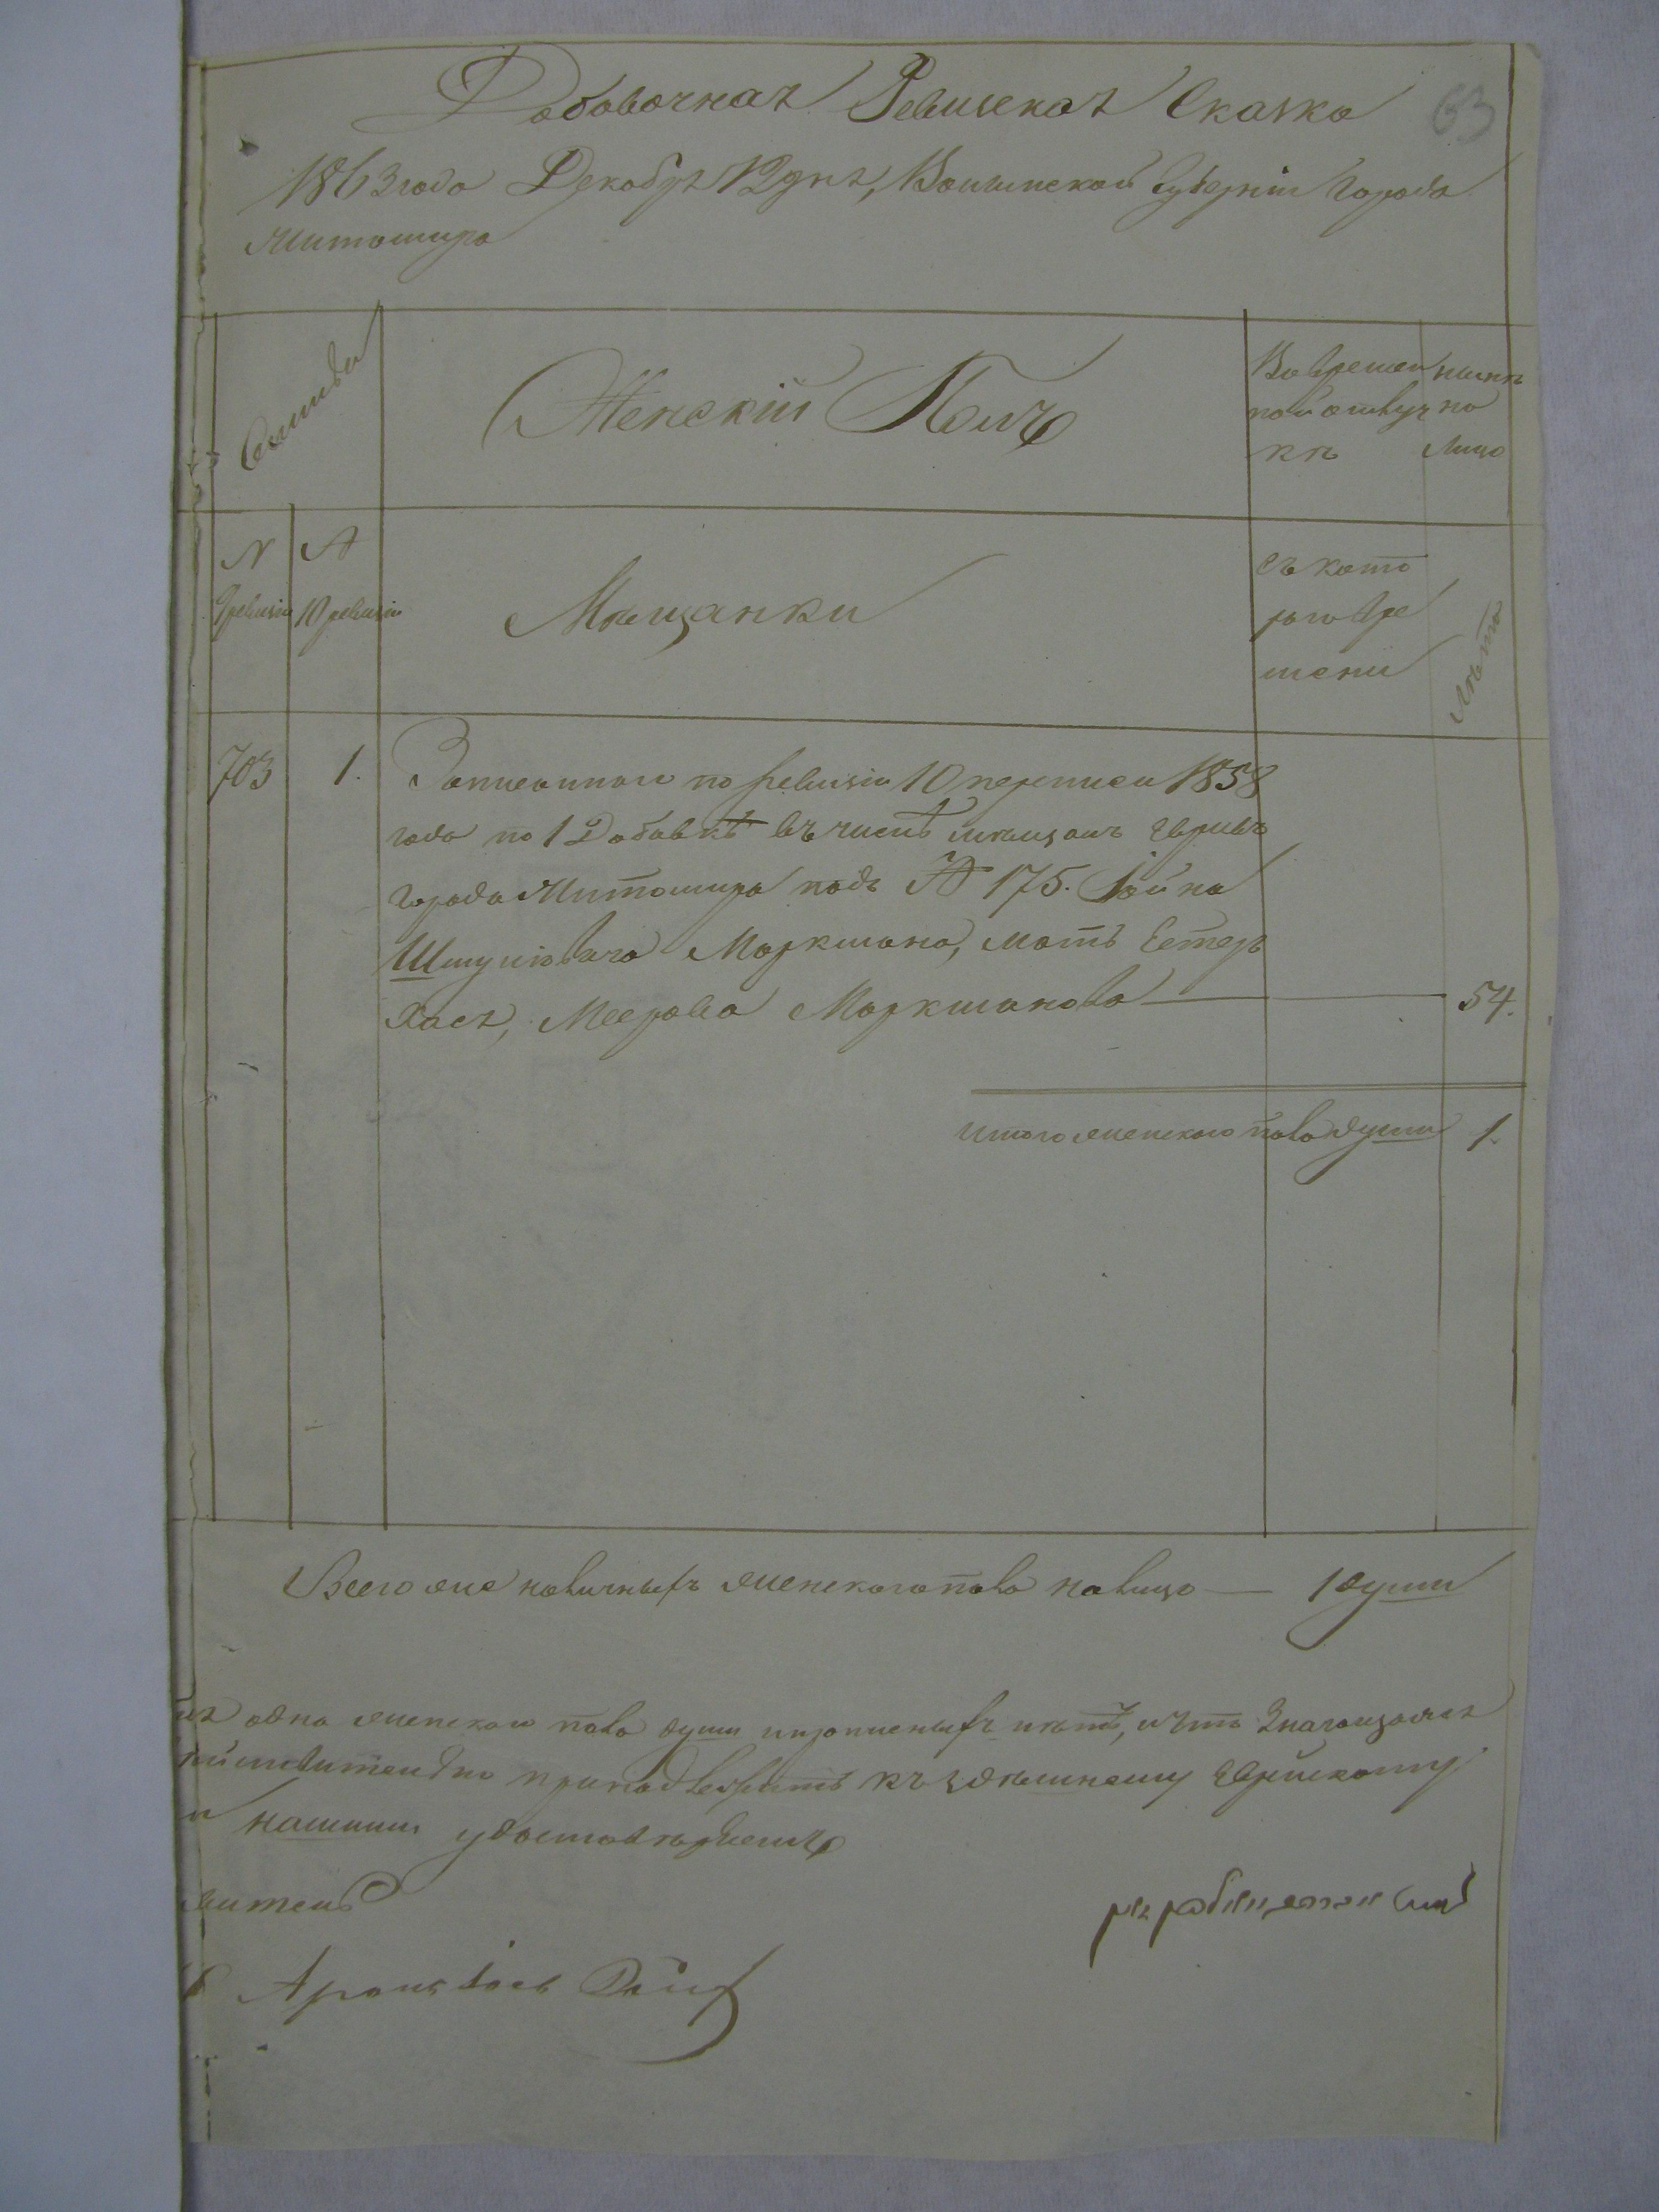 Добавочная Ревизская Сказка
63
1863 года Декабря 12 дня, Волынской Губернiи Города
Житомира
Семьи
Женскiй Полъ
Во времен
ной отлуч
кѣ
нынѣ
на
лицо
№
9 ревизiи
№
10 ревизiи
Мѣщанки
съ кото
раго вре
мени
лѣта
703 1. Записаннаго по ревизiи 10 переписи 1858
года по 1 Добавкѣ въ числѣ мѣщанъ Евреевъ
города Житомира подъ № 175. Iойна
Шмулевича Маркмана, мать Естеръ
Хася, Меерова Маркманова 54.
Итого женскаго пола души 1.
Всего же наличныхъ женскаго пола на лицо 1 душа
одна женскаго пола душа и прописныхъ нѣтъ, и что Значащаяся
принадлежитъ къ здѣшнему Еврейскому
нашимъ удостовѣряемъ